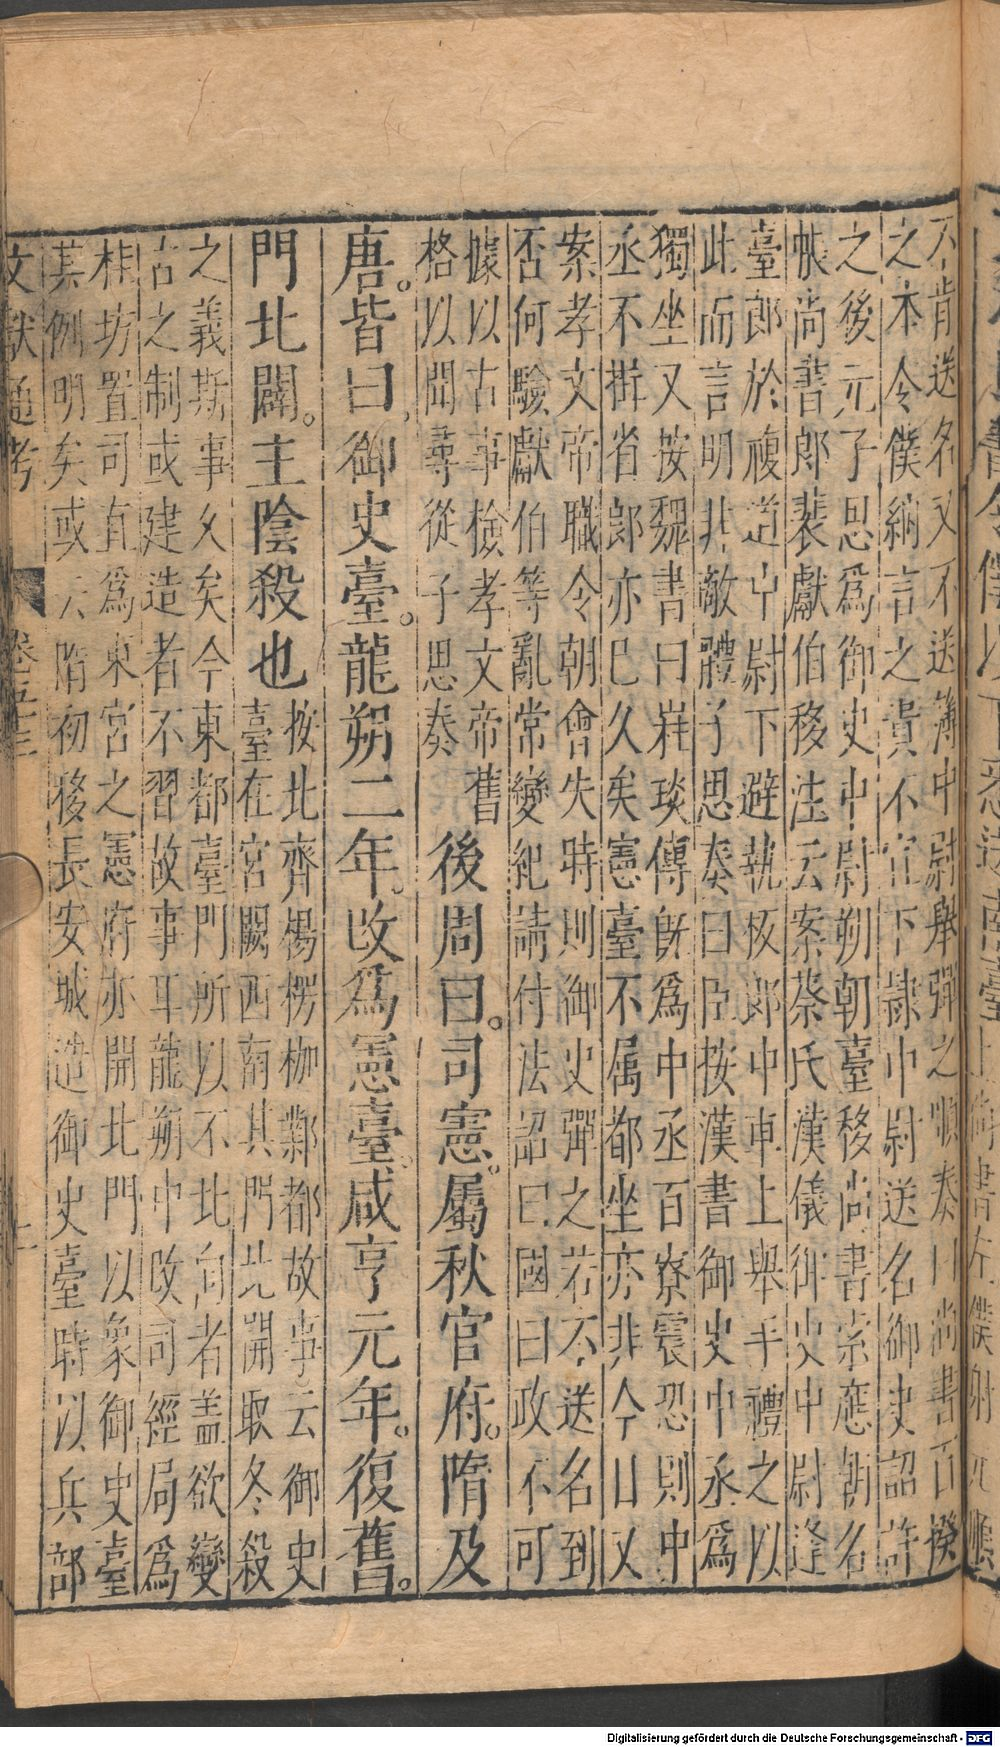 不肯送名又不送簿中尉舉彈之順奏曰尚書百揆
之本令僕納言之貴不宜下隷中尉送名御史詔許
之後元子思爲御史中尉朔朝臺移尚書索應朝名
帳尚書郎裴獻伯移注云案蔡氏漢儀御史中尉逢
臺郎於複道中尉下避執板郎中車上舉手禮之以
此而言明非敵體子思奏曰臣按漢書御史中丞爲
獨坐又按魏書曰崔琰傳旣爲中丞百寮震恐則中
丞不揖省郎亦已久矣憲臺不属都坐亦非今日又
案孝文帝職令朝會失時則御史彈之若不送名到
否何驗獻伯等亂常變紀請付法詔曰國曰政不可
據以古事檢孝文帝舊
格以聞尋從子思奏
後周曰司憲屬秋官府隋及
唐皆曰御史臺龍朔二年改爲憲臺咸亨元年復舊
門北闢主陰殺也
按北齊楊楞伽鄴都故事云御史
臺在宮闕西南其門北開取冬殺
之義斯事乆矣今東都臺門所以不北向者盖欲變
古之制或建造者不習故事耳龍朔中改司經局爲
桂坊置司直爲東宮之憲府亦開北門以象御史臺
其例明矣或云隋初移長安城造御史臺時以兵部
文獻通考 卷五十三
Digitalisierung gefördert durch die Deutsche Forschungsgemeinschaft - DFG